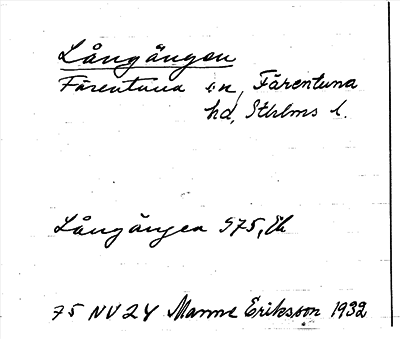 Långängen
Färentuna sn, Färentuna
hd, Sthlms l.
Långängen 975, Ek
75 NV 24 Manne Eriksson 1932